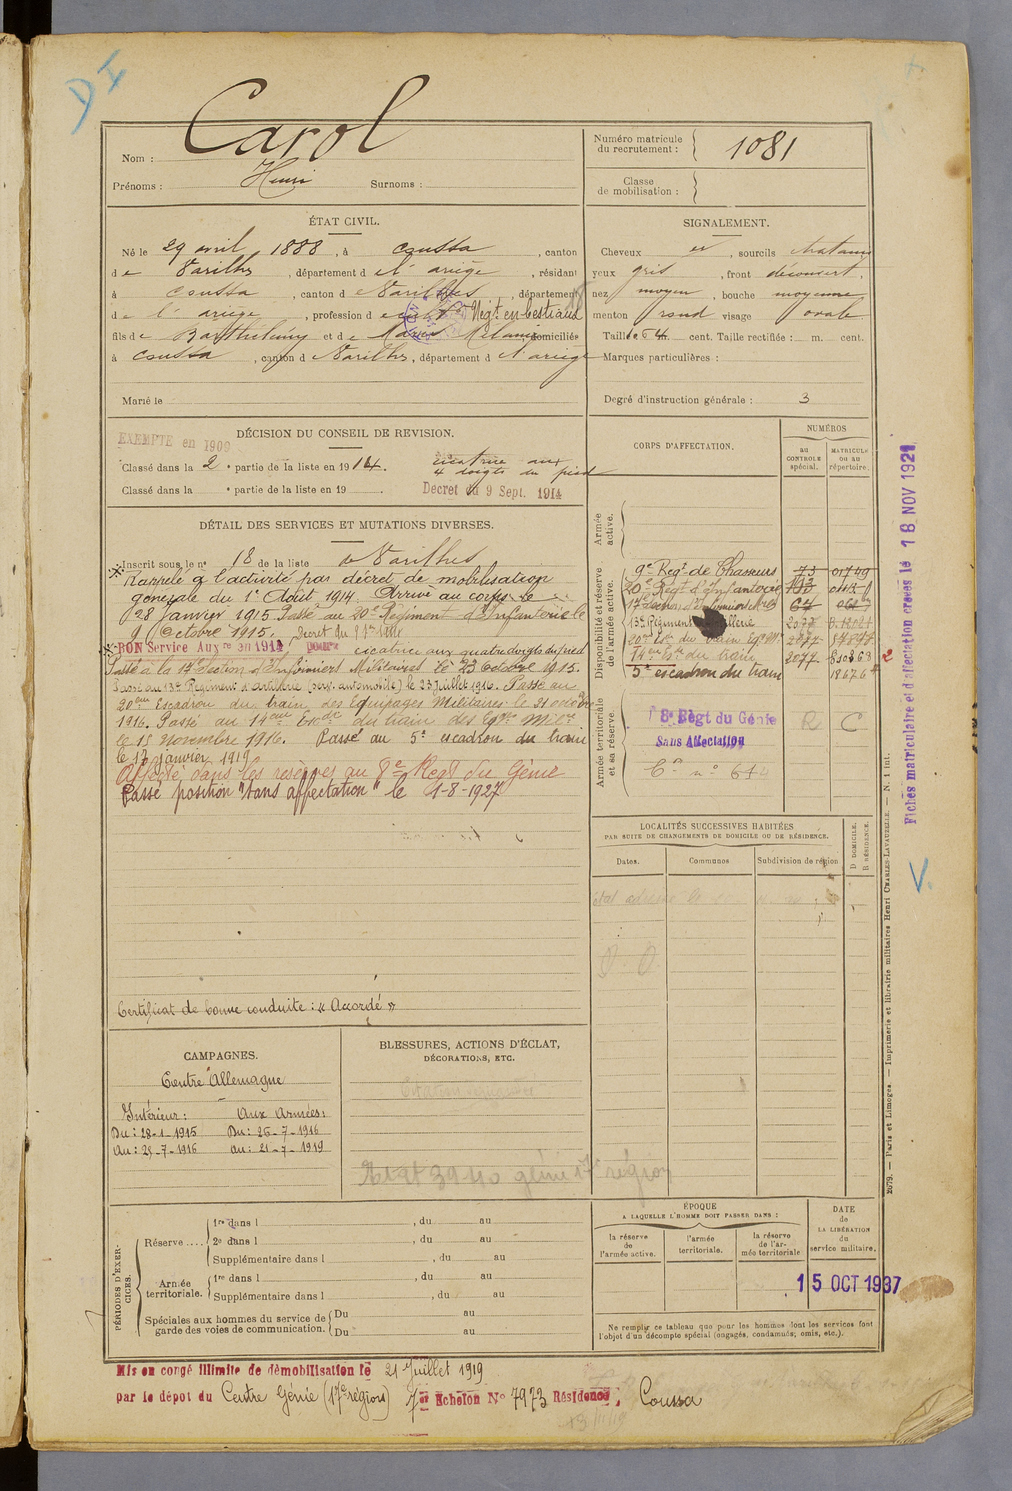 D I
Carol
Nom :
Prénoms : Henri Surnoms :
Numéro matricule du recrutement : 1081
Classe de mobilisation :
ÉTAT CIVIL.
Né le 29 avril 1888, à Coussa, canton
de Varilhes, département de l'ariège, résidant
à Coussa, canton de Varilhes, département
de l'ariege, profession de Négt en bestiaux
fils de Barthélémy et de Marie Mélanie domiciliés
à Coussa, canton de Varilhes, département de l'ariège
Marié le
SIGNALEMENT.
Cheveux et, sourcils chatains
yeux gris, front découvert,
nez moyen, bouche moyenne
menton rond visage ovale
Taille 1 m 64 cent. Taille rectifiée : m. cent.
Marques particulières :
Degré d'instruction générale : 3
DÉCISION DU CONSEIL DE REVISION.
EXEMPTÉ en 1909
Classé dans la 2e partie de la liste en 1914. cicatrice aux 4 doigts du pied
Classé dans la e partie de la liste en 19 . Décret du 9 Sept. 1914
DÉTAIL DES SERVICES ET MUTATIONS DIVERSES.
Inscrit sous le no 18 de la liste de Varilhes
Rappelé à l'activité par décret de mobilisation
générale du 1er Août 1914. Arrivé au corps le
28 janvier 1915. Passé au 20e Régiment d'Infanterie le
9 Octobre 1915.
BON Service Auxre cicatrice aux quatre doigts du pied
Passé à la 17e Section d'Infirmiers Militaires le 23 Octobre 1915.
Passé au 13e Régiment d'Artillerie (serv. automobile) le 23 juillet 1916. Passé au
20eme Escadron du train des Equipages Militaires le 31 octobre
1916. Passé au 14eme Escdon du train des Eqges Milres
le 15 novembre 1916. Passé au 5e escadron du train
le 13 janvier 1919
Affecté dans les reserves au 8e Regt du Génie
Passé position "sans affectation" le 1-8-1927
Certificat de bonne conduite : « Accordé »
CORPS D'AFFECTATION.
NUMÉROS
au CONTROLE spécial.
MATRICULE ou au répertoire.
Armée active.
Disponibilité et réserve de l'armée active.
9e Regt de Chasseurs
20e Regt d'Infanterie
17e Section d'Infirmiers Mres
13e Régiment d'Artillerie
20e Esc du train Eq. M.
14eme Esc du train 2077
5e escadron du train
Armée territoriale et sa réserve.
8e Regt du Génie R C
Sans Affectation
LOCALITÉS SUCCESSIVES HABITÉES
PAR SUITE DE CHANGEMENTS DE DOMICILE OU DE RÉSIDENCE.
Dates.
Communes
Subdivision de région.
D. DOMICILE.
R. RÉSIDENCE.
Fiches matriculaire et d'affectation créées le 18 NOV 1921
V.
2079. — Paris et Limoges. — Imprimerie et librairie militaires Henri Charles-Lavauzelle. — N. 1 int.
CAMPAGNES.
Contre Allemagne
Intérieur : Aux Armées :
Du : 28-1-1915 Du : 26-7-1916
Au : 25-7-1916 au : 21-7-1919
BLESSURES, ACTIONS D'ÉCLAT,
DÉCORATIONS, ETC.
génie 17e région
PÉRIODES D'EXERCICES.
Réserve .... 1re dans l , du au
2e dans l , du au
Supplémentaire dans l , du au
Armée territoriale. 1re dans l , du au
Supplémentaire dans l , du au
Spéciales aux hommes du service de garde des voies de communication. Du au
Du au
ÉPOQUE
A LAQUELLE L'HOMME DOIT PASSER DANS :
la réserve de l'armée active.
l'armée territoriale.
la réserve de l'armée territoriale
DATE de LA LIBÉRATION du service militaire.
15 OCT 1937
Ne remplir ce tableau que pour les hommes dont les services font
l'objet d'un décompte spécial (engagés, condamnés, omis, etc.).
Mis en congé illimité de démobilisation le 21 Juillet 1919
par le dépot du Centre Génie (17e région) 7er Echelon No 7973 Résidence, Coussa